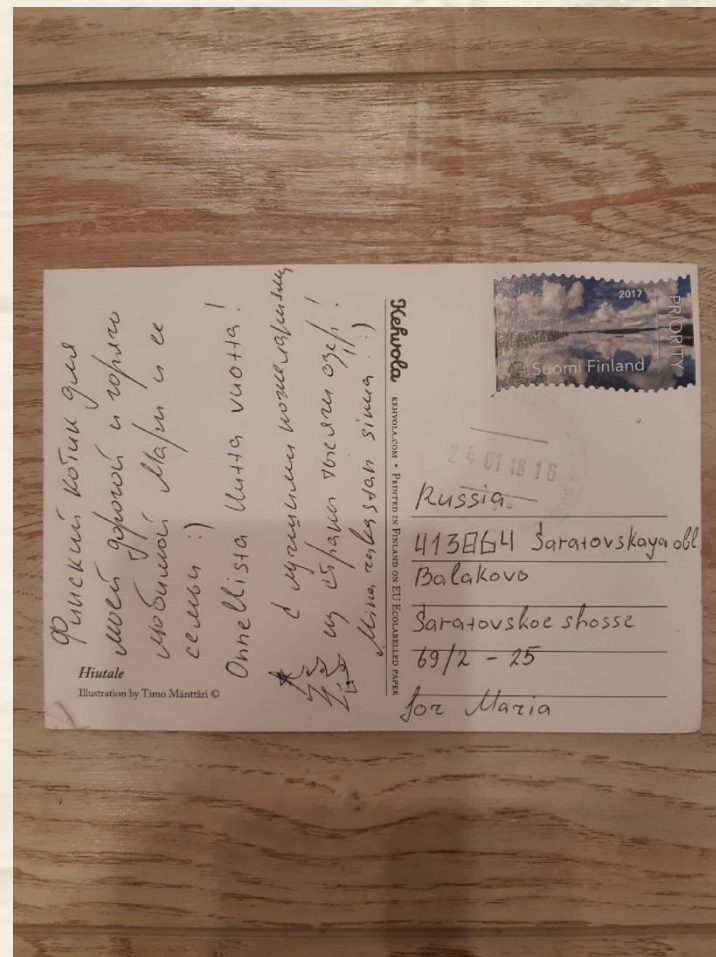 Финский котик для
моей дорогой и горячо
любимой Мари и ее
семьи :)
Onnellista Uutta vuotta!
С лучшими пожеланиями
из страны тысячи озёр!
Mina rakastan sinua! :)
Hiutale
Illustration by Timo Mänttäri ©
Kehvola
KEHVOLA.COM • PRINTED IN FINLAND ON EU ECOLABELLED PAPER
2017
PRIORITY
Suomi Finland
24.01.18 16
Russia
413864 Saratovskaya obl.
Balakovo
Saratovskoe shosse
69/2 - 25
for Maria